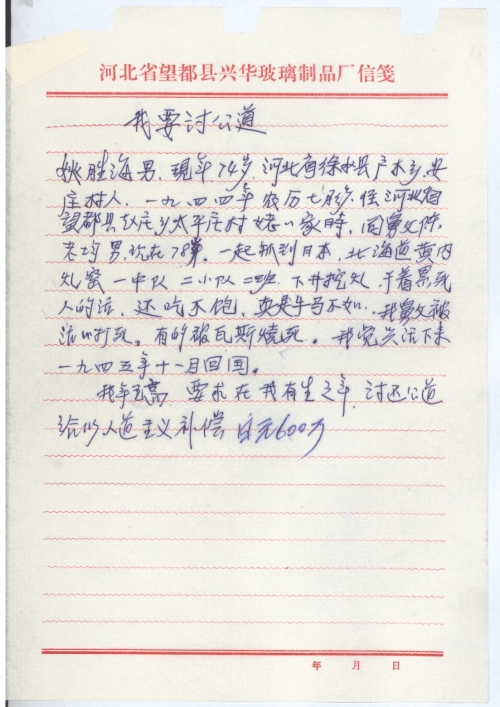 河北省望都县兴华玻璃制品厂信笺
我要讨公道
姚胜海男,现年74岁,河北省徐水县户木乡安
庄村人,一九四四年农历七月,住河北省
望都县赵庄乡太平庄村姥姥家时,同舅父陈
老均男,现在78岁,一起抓到日本,北海道黄内
一中队二小队二班 下井挖 干着累死
人的活,还吃不饱,真是牛马不如,我舅父被
活活打死。有的被瓦斯烧死。我兴活下来
一九四五年十一月回国。
我年高 要求在我有生之年,讨还公道
给以人道主义补偿 日元600万
年 月 日